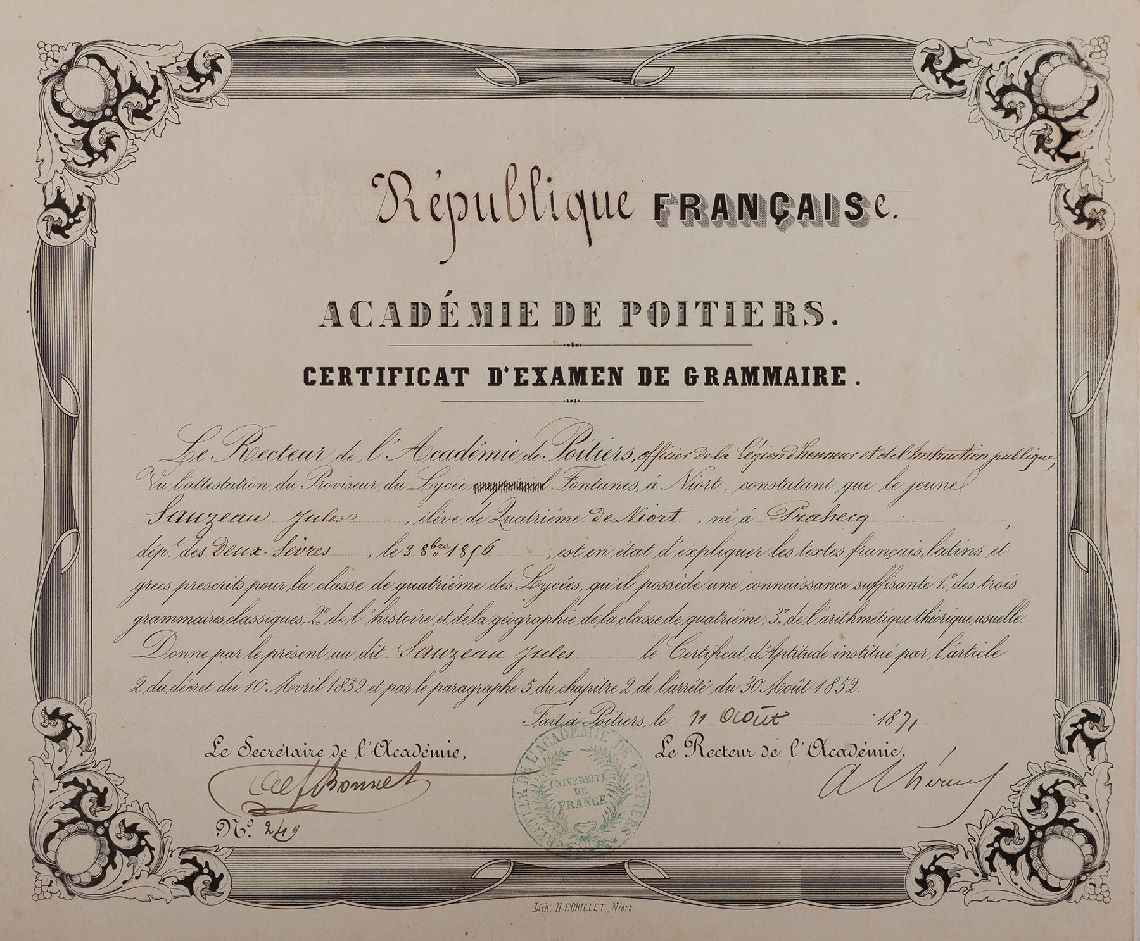 République FRANÇAISe.
ACADÉMIE DE POITIERS.
CERTIFICAT D'EXAMEN DE GRAMMAIRE.
Le Recteur de l'Académie de Poitiers, officier de la Légion d'honneur et de l'Instruction publique,
Vu l'attestation du Proviseur du Lycée Fontanes, à Niort, constatant que le jeune
Sauzeau Jules, élève de Quatrième de Niort, né à Prahecq,
dépt. des Deux-Sèvres, le 3 8bre 1856, est en état d'expliquer les textes français, latins et
grecs prescrits pour la classe de quatrième des Lycées, qu'il possède une connaissance suffisante 1º. des trois
grammaires classiques, 2º. de l'histoire et de la géographie de la classe de quatrième, 3º. de l'arithmétique théorique usuelle.
Donne par le présent au dit Sauzeau Jules le Certificat d'Aptitude institué par l'article
2 du décret du 10 Avril 1852 et par le paragraphe 5 du chapitre 2 de l'arrêté du 30 Août 1852.
Fait à Poitiers, le 11 Août 1871
Le Secrétaire de l'Académie, Le Recteur de l'Académie,
Bonnet
Nº. 249
ACADÉMIE DE POITIERS
UNIVERSITÉ
DE
FRANCE
Lith. H. ECHILLET, Niort